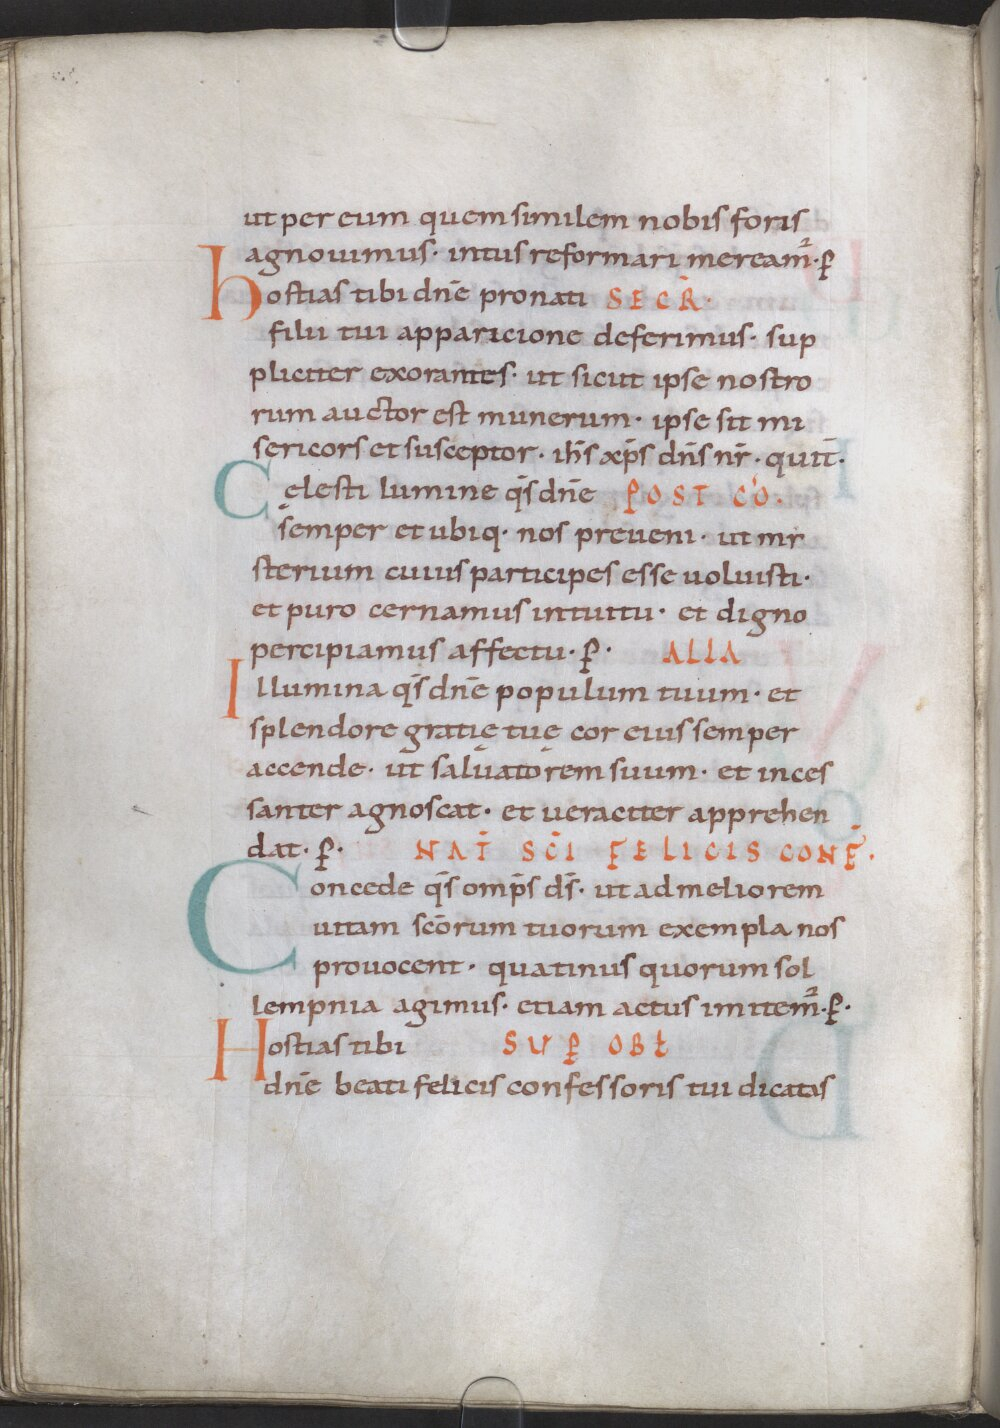 ut per eum quem similem nobis foris
agnouimus· intus reformari meream̅· ꝑ
hostias tibi dn̅e pro nati SECR̅·
filii tui apparicione deferimus· sup
pliciter exorantes· ut sicut ipse nostro
rum auctor est munerum· ipse sit mi
sericors et susceptor· ih̅s xp̅s dn̅s nr̅· qui t̅·
Cęlesti lumine qs̅ dn̅e POST CO̅·
semper et ubiq· nos preueni· ut mi
sterium cuius participes esse uoluisti·
et puro cernamus intuitu· et digno
percipiamus affectu· ꝑ· ALIA
Illumina qs̅ dn̅e populum tuum· et
splendore gratię tuę cor eius semper
accende· ut saluatorem suum· et inces
santer agnoscat· et ueraciter apprehen
dat· ꝑ· NAT̅ SC̅I FELICIS CONF̅·
Concede qs̅ omp̅s ds̅· ut ad meliorem
uitam sc̅orum tuorum exempla nos
prouocent· quatinus quorum sol
lempnia agimus· etiam actus imitem̅· ꝑ·
Hostias tibi SUꝑ OBł
dn̅e beati felicis confessoris tui dicatas